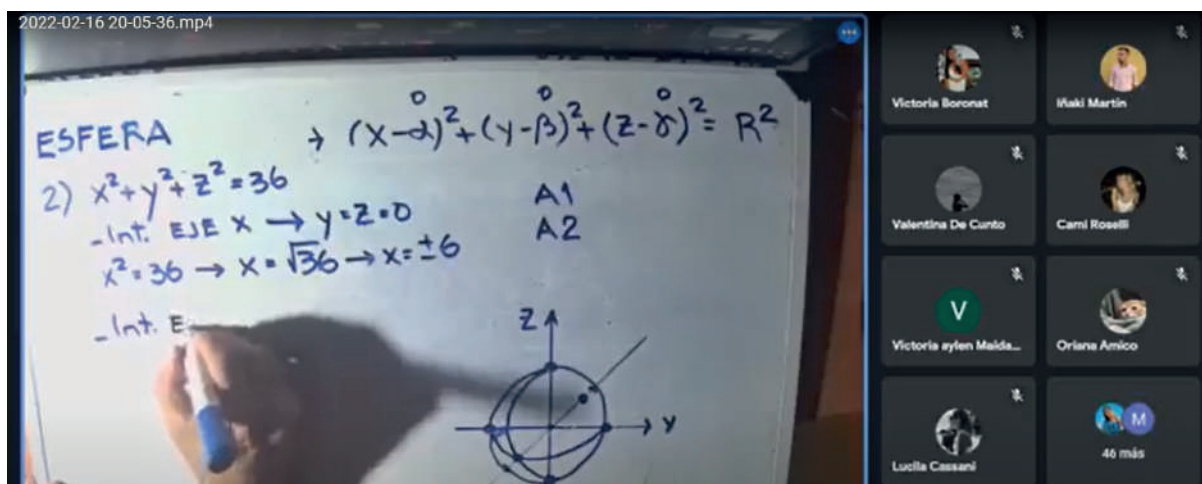 2022-02-16 20-05-36.mp4
ESFERA → (x-α)²+(y-β)²+(z-γ)²= R²
0 0 0
2) x²+y²+z²=36
-Int. EJE X → y=z=0
x²=36 → x=√36 → x=±6
A1
A2
-Int. E
Z
Y
Victoria Boronat
Iñaki Martín
Valentina De Cunto
Cami Roselli
V
Victoria aylen Maida...
Oriana Amico
Lucila Cassani
M
46 más